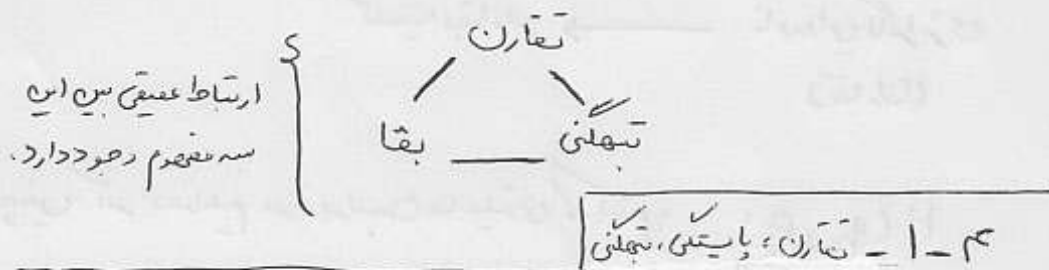 تقارن
تبهگنی
بقا
ارتباط عمیقی بین این
سه مفهوم وجود دارد.
۴-۱- تقارن، پایستگی، تبهگنی